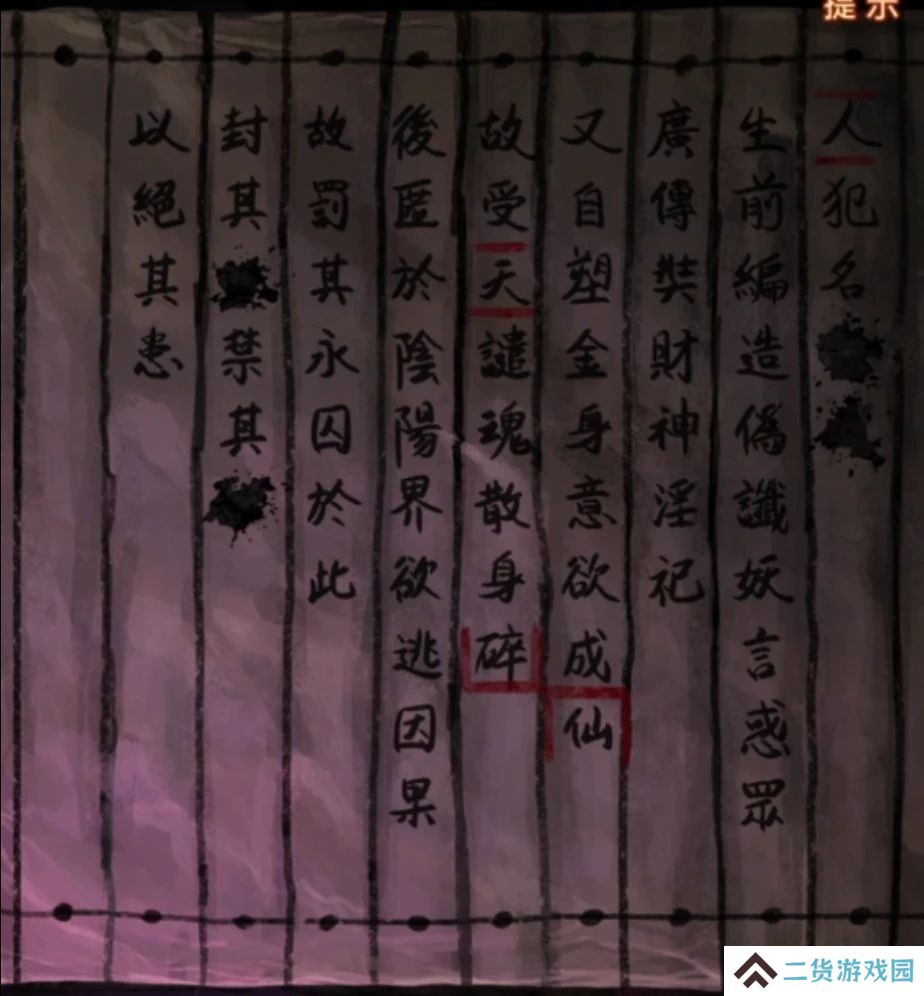 提示
人犯名
生前編造偽讖妖言惑眾
廣傳奘財神淫祀
又自塑金身意欲成仙
故受天譴魂散身碎
後匿於陰陽界欲逃因果
故罰其永囚於此
封其禁其
以絕其患
二货游戏园